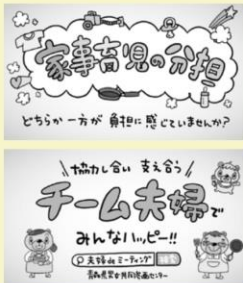 家事育児の分担
どちらか一方が 負担に感じていませんか?
協力し合い 支え合う
チーム夫婦で
みんなハッピー!!
夫婦 de ミーティング
青森県男女共同参画センター